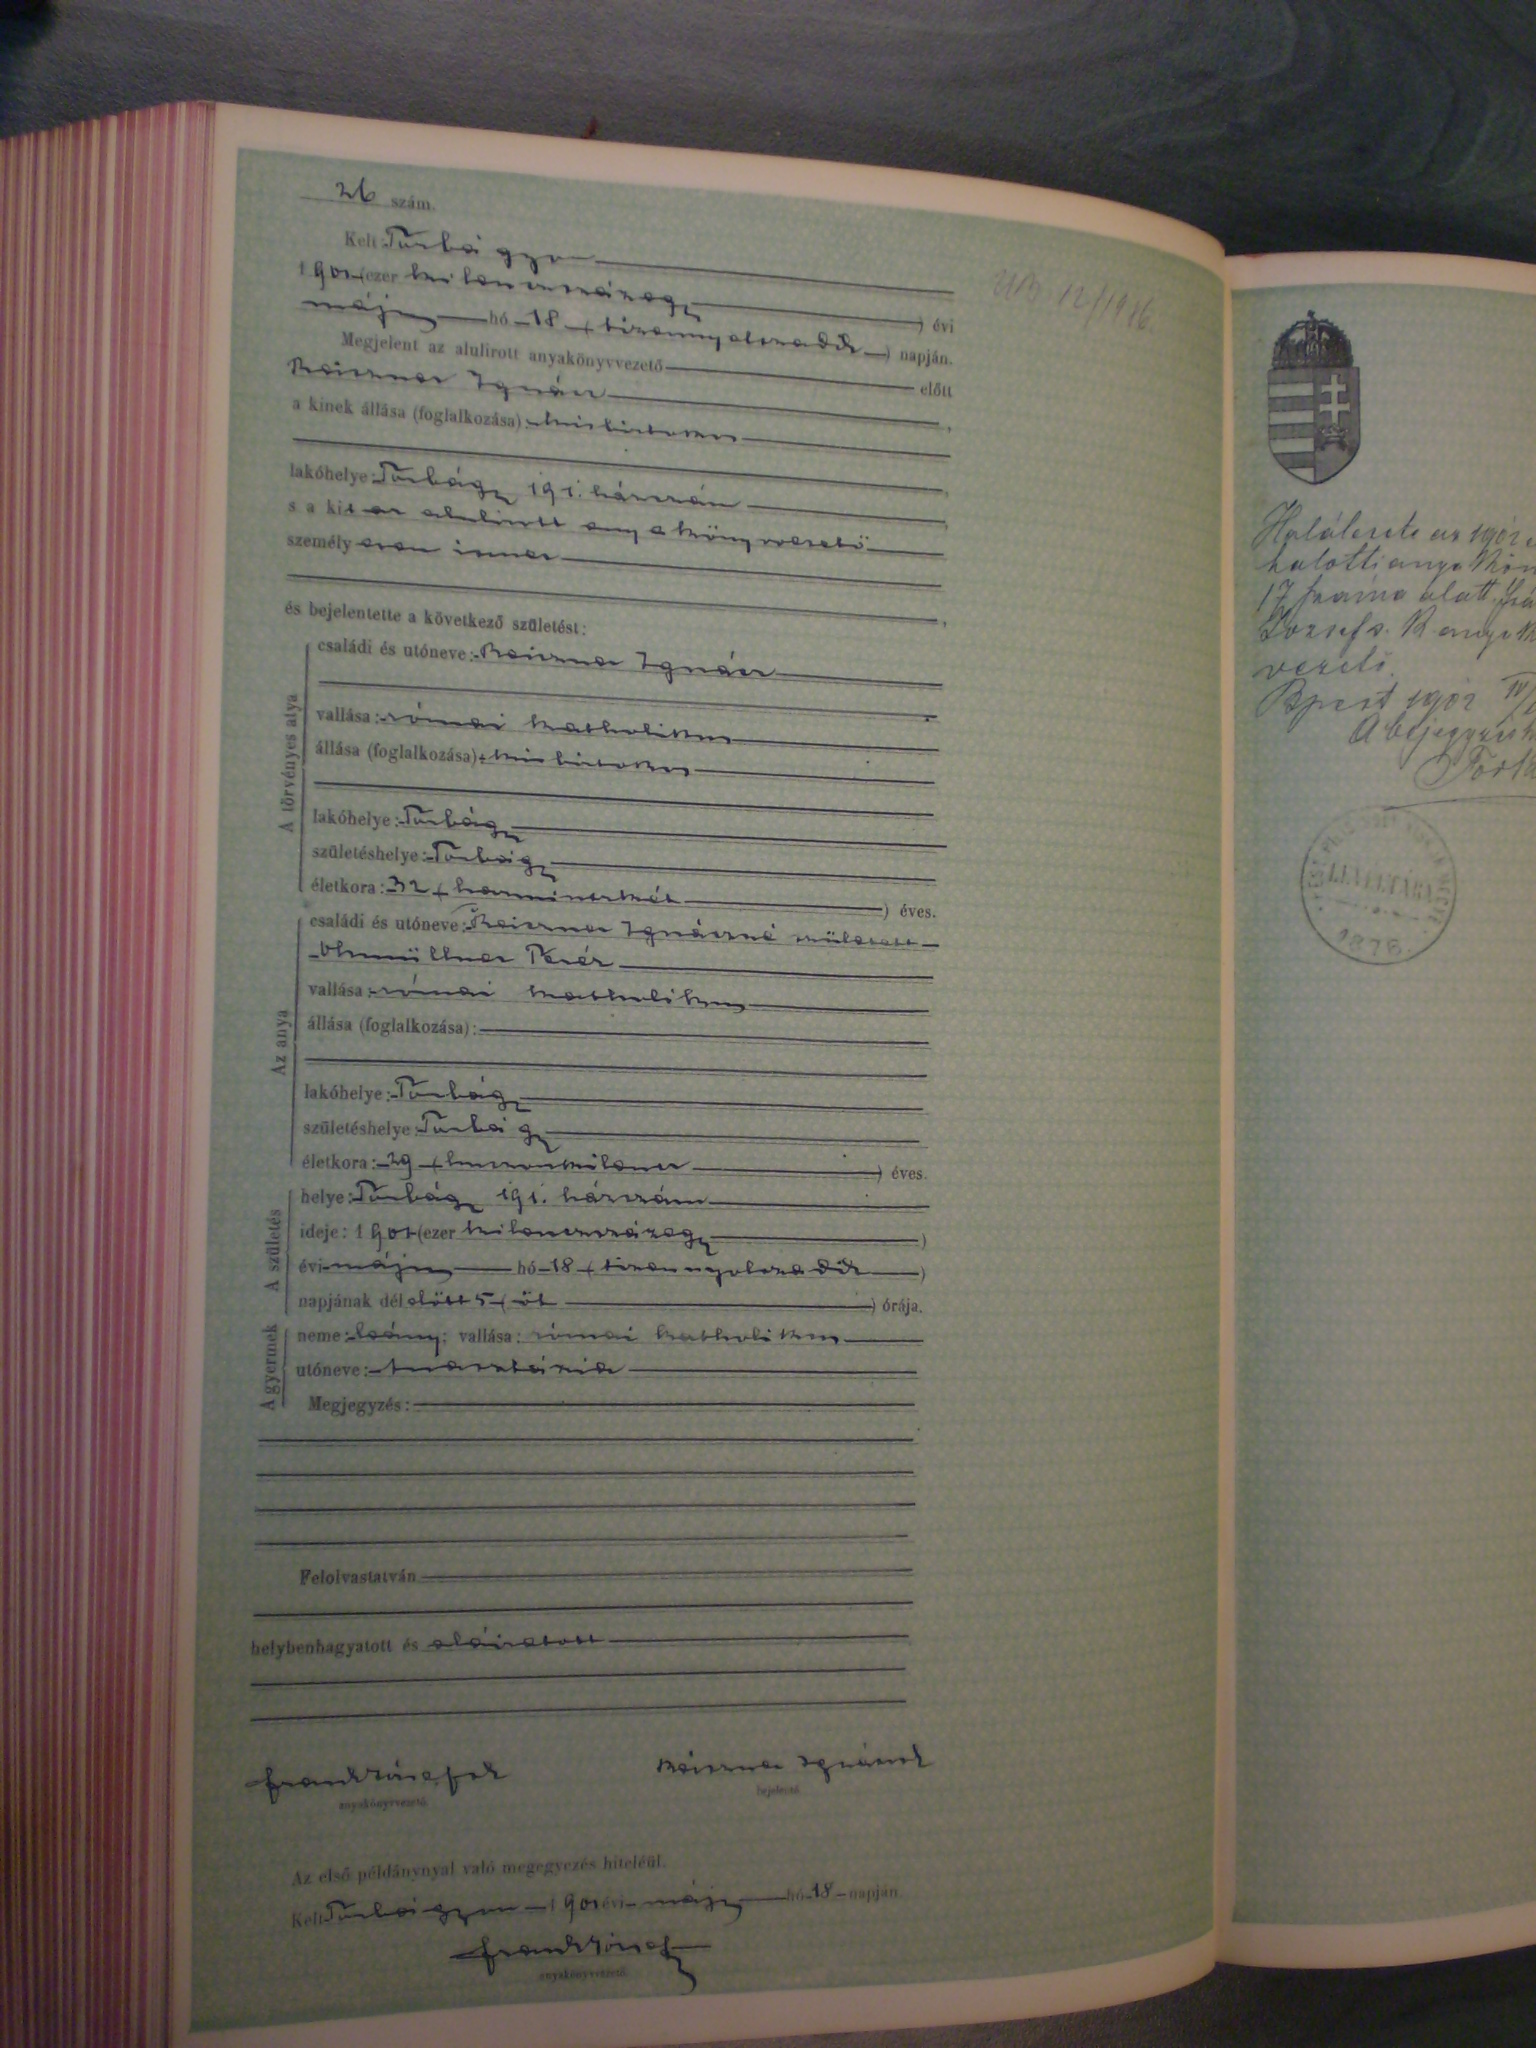 26 szám.
Kelt Törbágyon
1901 (ezer kilenczszázegy ) évi
május hó 18 (tizennyolczadik) napján.
Megjelent az alulirott anyakönyvvezető előtt
Reiszner Ignácz
a kinek állása (foglalkozása): kisbirtokos
lakóhelye: Törbágy 191. házszám
s a kit az alulirott anyakönyvvezető
személyesen ismer
és bejelentette a következő születést:
A törvényes atya
családi és utóneve: Reiszner Ignácz
vallása: római katholikus
állása (foglalkozása): kisbirtokos
lakóhelye: Törbágy
születéshelye: Törbágy
életkora: 32 (harminczkét ) éves.
Az anya
családi és utóneve: Reiszner Ignáczné született
Ohmüllner Teréz
vallása: római katholikus
állása (foglalkozása):
lakóhelye: Törbágy
születéshelye: Törbágy
életkora: 29 (huszonkilencz ) éves.
A születés
helye: Törbágy 191. házszám
ideje: 1901 (ezer kilenczszázegy )
évi május hó 18 (tizennyolczadik )
napjának dél előtt 5 (öt ) órája.
A gyermek
neme: leány; vallása: római katholikus
utóneve: Anasztázia
Megjegyzés:
Felolvastatván
helybenhagyatott és aláiratott
Frank József sk Reiszner Ignácz sk
anyakönyvvezető. bejelentő.
Az első példánynyal való megegyezés hiteléül.
Kelt Törbágyon 1901 évi május hó 18 napján.
Frank József
anyakönyvvezető.
Halálesete az 1902
halotti anyakön
17 száma alatt.
József s. k. anyak
vezető.
Bpest 1902 IV/
A bejegyzés h
1876.